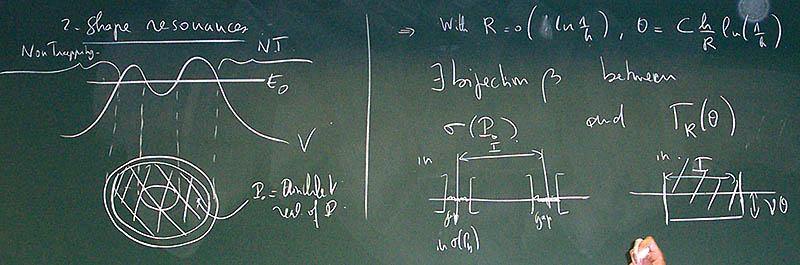 2. Shape resonances
Non Trapping
NT
E₀
V
P₀ = Dirichlet
real of P
⇒ With R = o( ln 1/h ), θ = C h/R ln(1/h)
∃ bijection β between
σ(P₀) and Γ_R(θ)
in I
gap gap
in σ(P₀)
in I
νθ